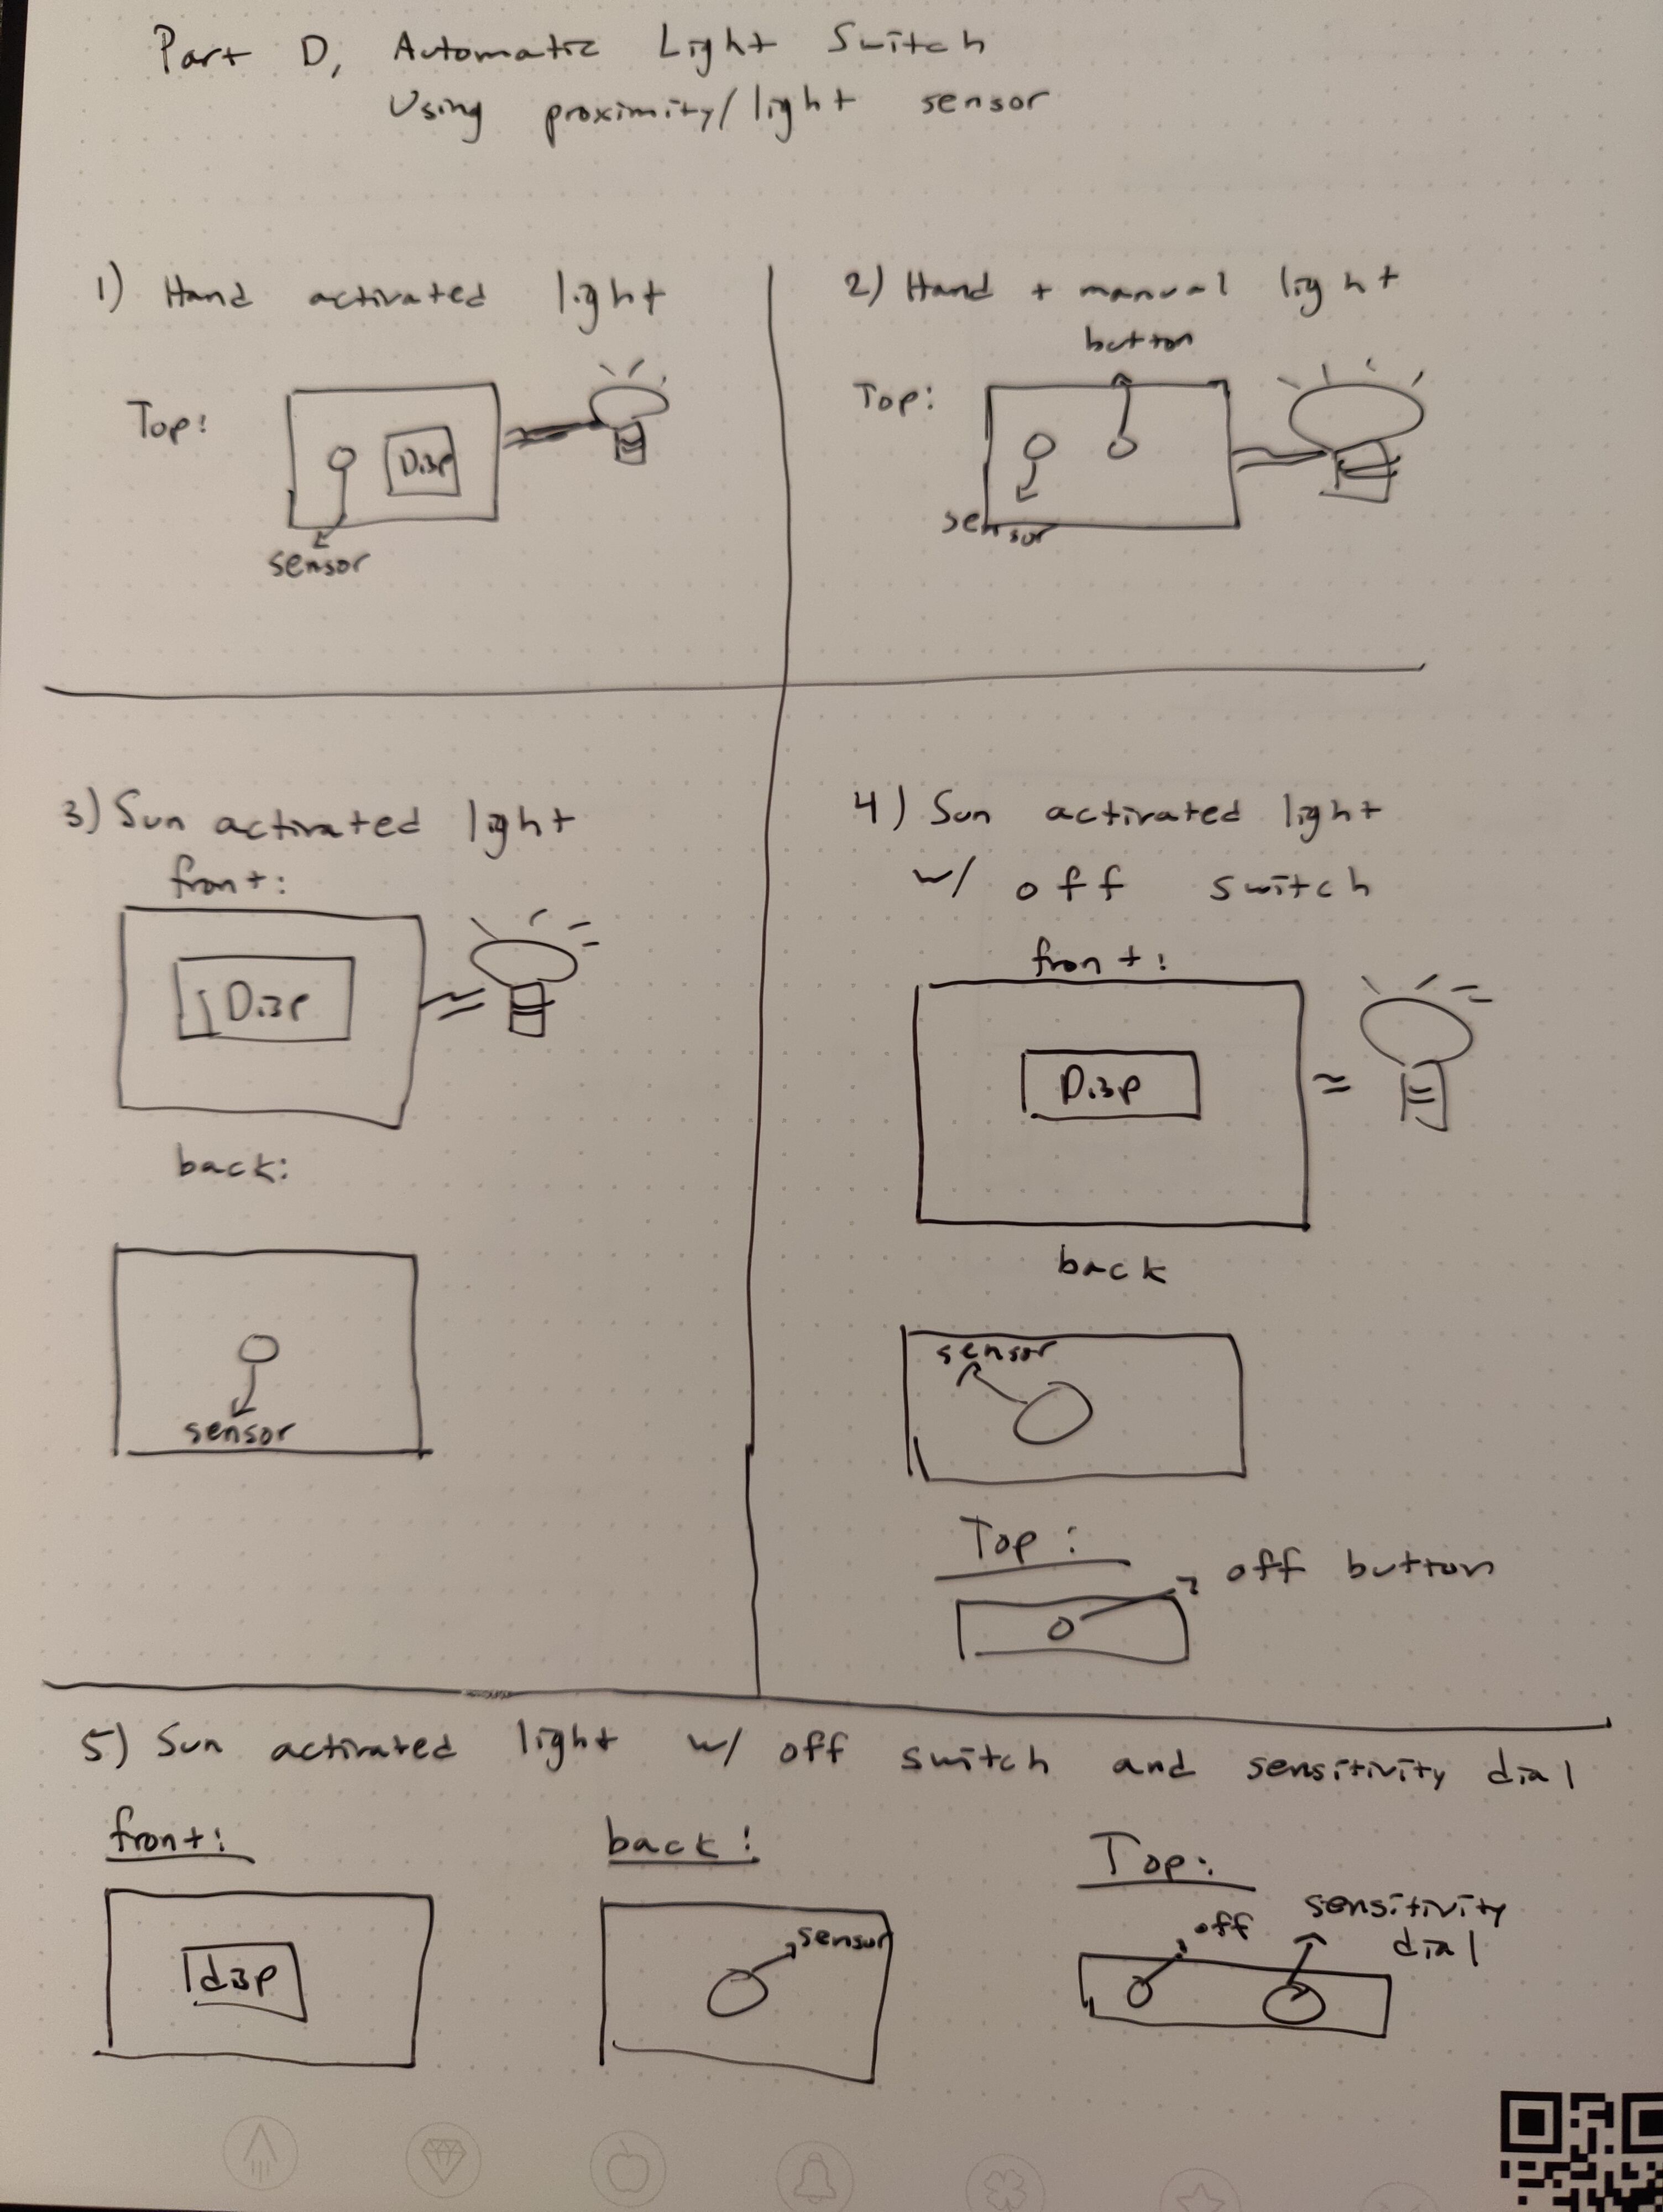 Part D, Automatic Light Switch
Using proximity/light sensor
1) Hand activated light
Top:
Disp
sensor
2) Hand + manual light
button
Top:
sensor
3) Sun activated light
front:
Disp
back:
sensor
4) Sun activated light
w/ off switch
front:
Disp
back
sensor
Top:
off button
5) Sun activated light w/ off switch and sensitivity dial
front:
disp
back:
sensor
Top:
off
sensitivity
dial